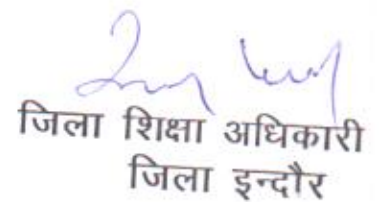 जिला शिक्षा अधिकारी
जिला इन्दौर